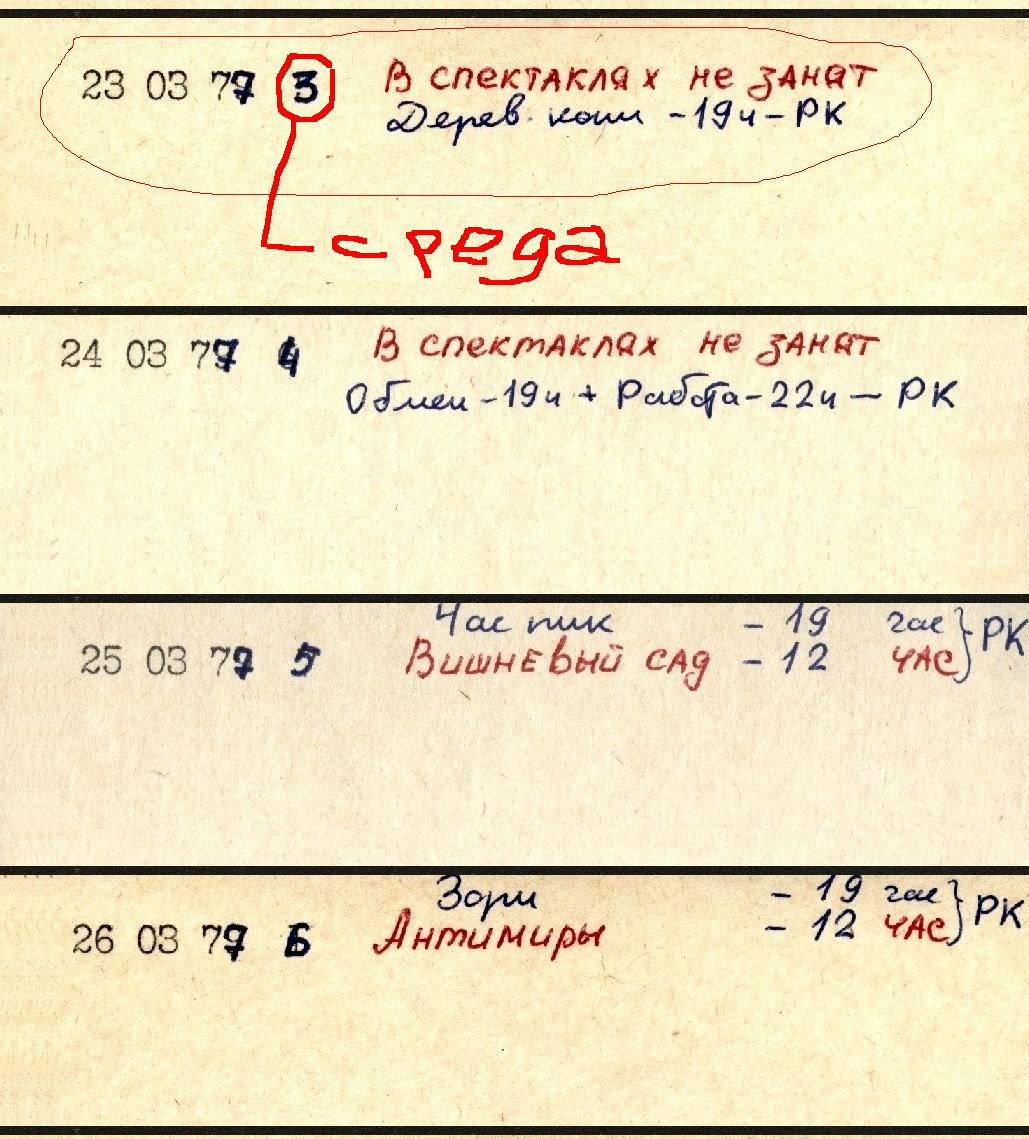 23 03 77 3 В спектаклях не занят
Дерев. кони - 19ч - РК
среда
24 03 77 4 В спектаклях не занят
Обмен - 19ч + Работа - 22ч - РК
Час пик - 19 час
25 03 77 5 Вишневый сад - 12 час } РК
Зори - 19 час
26 03 77 6 Антимиры - 12 час } РК